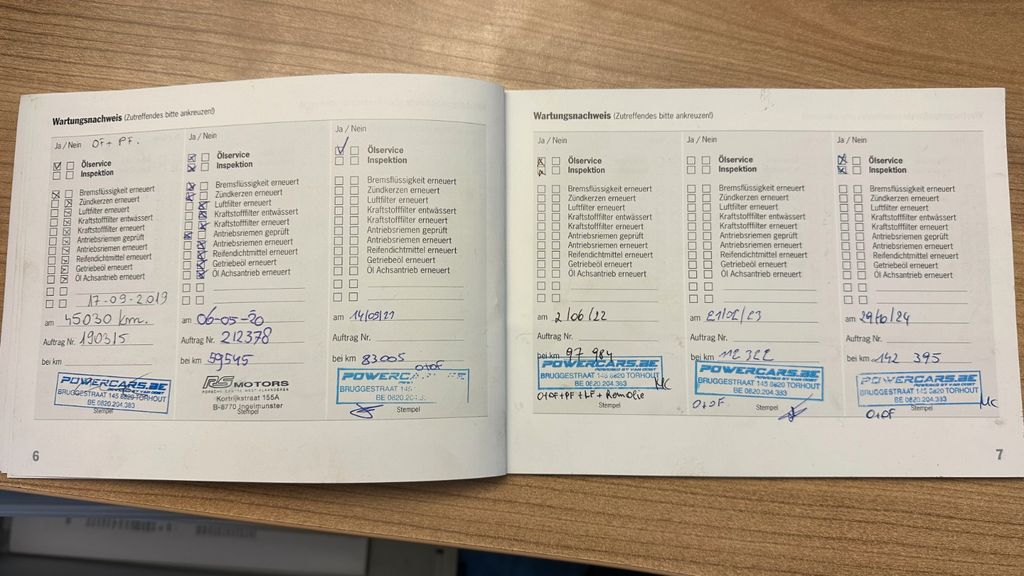 Wartungsnachweis (Zutreffendes bitte ankreuzen!)
Ja / Nein OF + PF.
Ölservice
Inspektion
Bremsflüssigkeit erneuert
Zündkerzen erneuert
Luftfilter erneuert
Kraftstofffilter entwässert
Kraftstofffilter erneuert
Antriebsriemen geprüft
Antriebsriemen erneuert
Reifendichtmittel erneuert
Getriebeöl erneuert
Öl Achsantrieb erneuert
17-09-2019
am 45030 km.
Auftrag Nr. 190315
bei km
POWERCARS.BE
BRUGGESTRAAT 145 8820 TORHOUT
BE 0820.204.383
Stempel
Ja / Nein
Ölservice
Inspektion
Bremsflüssigkeit erneuert
Zündkerzen erneuert
Luftfilter erneuert
Kraftstofffilter entwässert
Kraftstofffilter erneuert
Antriebsriemen geprüft
Antriebsriemen erneuert
Reifendichtmittel erneuert
Getriebeöl erneuert
Öl Achsantrieb erneuert
am 06-05-20
Auftrag Nr. 212378
bei km 59545
RS MOTORS
Kortrijkstraat 155A
B-8770 Ingelmunster
Stempel
Ja / Nein
Ölservice
Inspektion
Bremsflüssigkeit erneuert
Zündkerzen erneuert
Luftfilter erneuert
Kraftstofffilter entwässert
Kraftstofffilter erneuert
Antriebsriemen geprüft
Antriebsriemen erneuert
Reifendichtmittel erneuert
Getriebeöl erneuert
Öl Achsantrieb erneuert
am 14/09/21
Auftrag Nr.
bei km 83005
O+OF
POWERCARS
BRUGGESTRAAT 145
BE 0820.204.3
Stempel
6
Wartungsnachweis (Zutreffendes bitte ankreuzen!)
Ja / Nein
Ölservice
Inspektion
Bremsflüssigkeit erneuert
Zündkerzen erneuert
Luftfilter erneuert
Kraftstofffilter entwässert
Kraftstofffilter erneuert
Antriebsriemen geprüft
Antriebsriemen erneuert
Reifendichtmittel erneuert
Getriebeöl erneuert
Öl Achsantrieb erneuert
am 2/06/22
Auftrag Nr.
bei km 97 984
POWERCARS.BE
BRUGGESTRAAT 145 8820 TORHOUT
BE 0820.204.383
MC
O+OF+PF+LF+Remolie
Stempel
Ja / Nein
Ölservice
Inspektion
Bremsflüssigkeit erneuert
Zündkerzen erneuert
Luftfilter erneuert
Kraftstofffilter entwässert
Kraftstofffilter erneuert
Antriebsriemen geprüft
Antriebsriemen erneuert
Reifendichtmittel erneuert
Getriebeöl erneuert
Öl Achsantrieb erneuert
am
Auftrag Nr.
bei km 112 322
POWERCARS.BE
POWERED BY VAN OOST
BRUGGESTRAAT 145 8820 TORHOUT
BE 0820.204.383
O+OF
Stempel
Ja / Nein
Ölservice
Inspektion
Bremsflüssigkeit erneuert
Zündkerzen erneuert
Luftfilter erneuert
Kraftstofffilter entwässert
Kraftstofffilter erneuert
Antriebsriemen geprüft
Antriebsriemen erneuert
Reifendichtmittel erneuert
Getriebeöl erneuert
Öl Achsantrieb erneuert
am 29/10/24
Auftrag Nr.
bei km 142 395
POWERCARS.BE
POWERED BY VAN OOST
BRUGGESTRAAT 145 8820 TORHOUT
BE 0820.204.383
MC
O+OF
Stempel
7